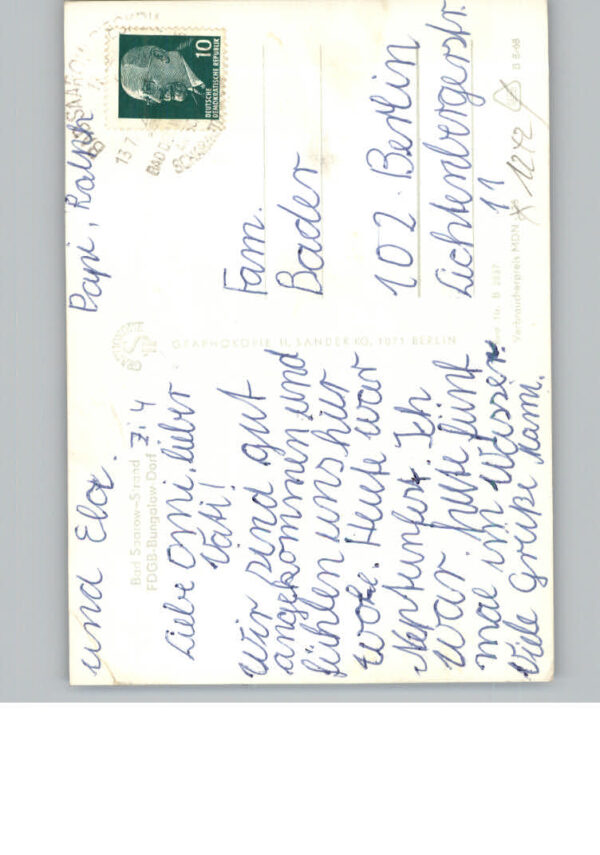 Bad Saarow-Strand
FDGB-Bungalow Dorf
Zi 4
Liebe Omi, lieber
Vati!
Wir sind gut
angekommen und
fühlen uns hier
wohl. Heute war
Neptunfest. Ich
war heute fünf
mal im Wasser.
Viele Grüße Mami,
Papi, Ralph
und Ela.
GRAPHOKOPIE H. SANDER KG, 1071 BERLIN
10
DEUTSCHE
DEMOKRATISCHE REPUBLIK
BAD SAAROW
Fam.
Bader
102 Berlin
Lichtenbergerstr.
11
Verbraucherpreis MDN
1242
B 5-68